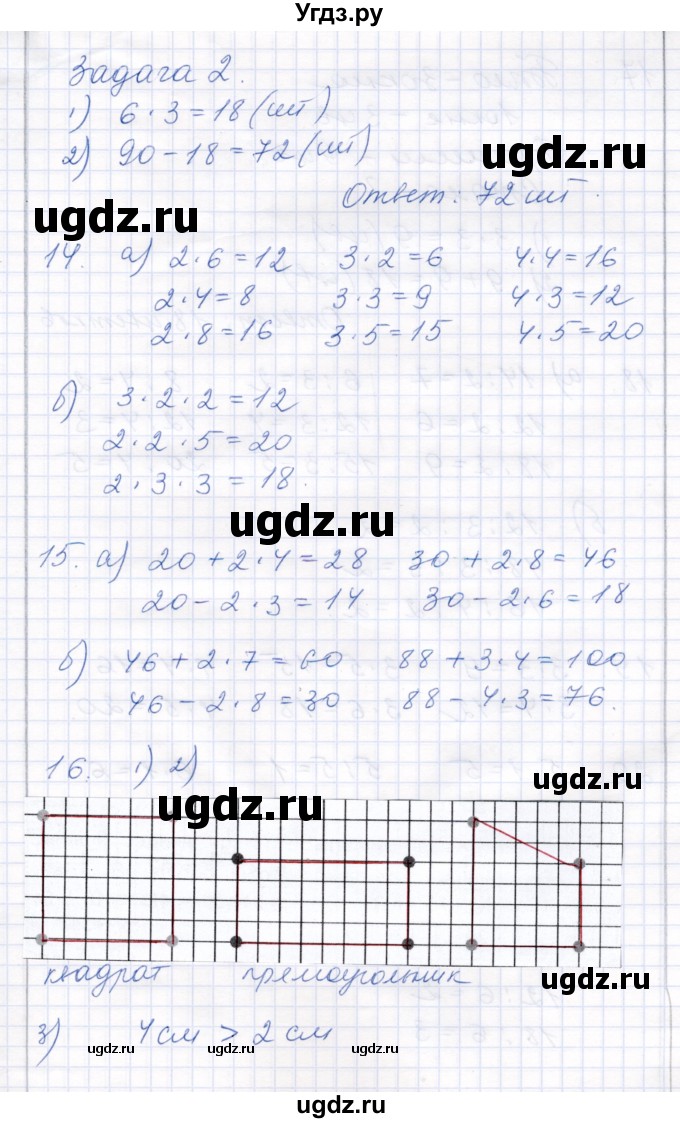 Угдз.ру
Задача 2.
1) 6 · 3 = 18 (шт)
2) 90 - 18 = 72 (шт)
ugdz.ru
Ответ: 72 шт.
ugdz.ru
14. а) 2·6=12 3·2=6 4·4=16
2·4=8 3·3=9 4·3=12
2·8=16 3·5=15 4·5=20
б) 3·2·2=12
2·2·5=20
2·3·3=18.
ugdz.ru
15. а) 20+2·4=28 30+2·8=46
20-2·3=14 30-2·6=18
б) 46+2·7=60 88+3·4=100
46-2·8=30 88-4·3=76.
16. 1) 2)
ugdz.ru
ugdz.ru
квадрат прямоугольник
ugdz.ru
3) 4см > 2см
ugdz.ru ugdz.ru ugdz.ru
ugdz.ru